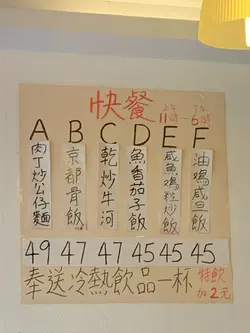 快餐
上午11時-下午6時
A B C D E F
肉丁炒公仔麵
京都骨飯
乾炒牛河
魚香茄子飯
咸魚鳮粒炒飯
油鳮咸旦飯
49 47 47 45 45 45
奉送冷熱飲品一杯
特飲加2元